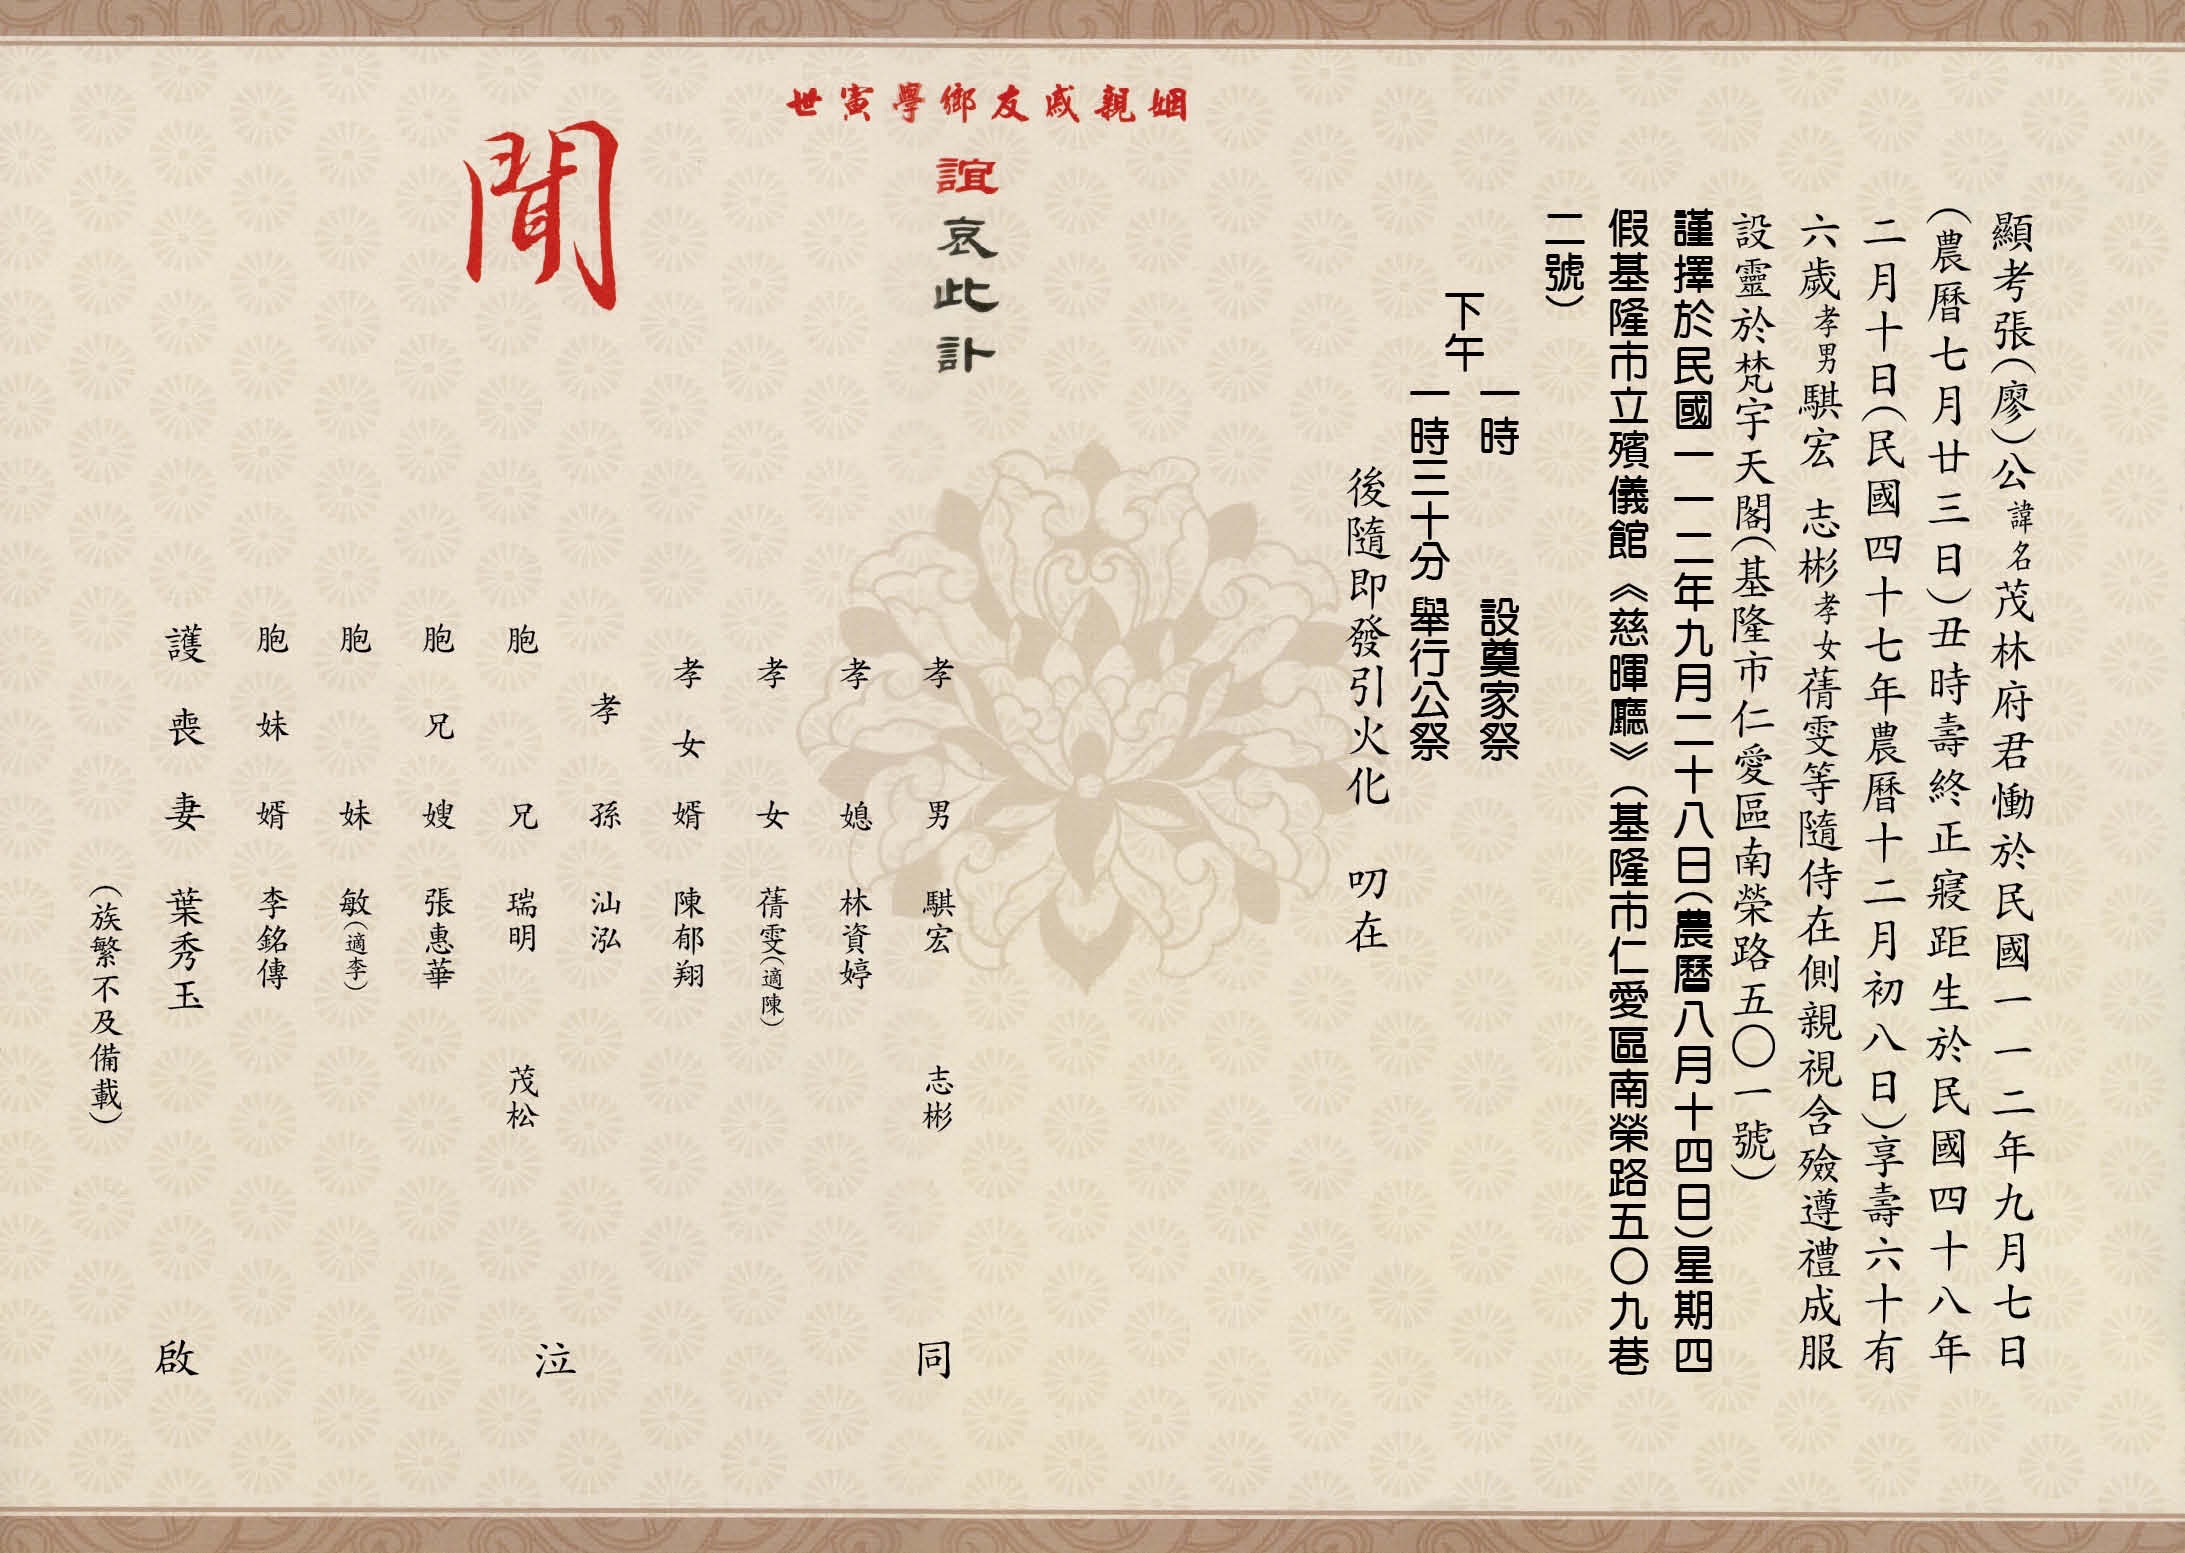 顯考張(廖)公諱名茂林府君慟於民國一一二年九月七日
(農曆七月廿三日)丑時壽終正寢距生於民國四十八年
二月十日(民國四十七年農曆十二月初八日)享壽六十有
六歲孝男騏宏 志彬孝女蒨雯等隨侍在側親視含殮遵禮成服
設靈於梵宇天閣(基隆市仁愛區南榮路五〇一號)
謹擇於民國一一二年九月二十八日(農曆八月十四日)星期四
假基隆市立殯儀館《慈暉廳》(基隆市仁愛區南榮路五〇九巷
二號)
下午
一時 設奠家祭
一時三十分 舉行公祭
後隨即發引火化 叨在
姻親戚友鄉學寅世
誼哀此訃
聞
孝男 騏宏 志彬
孝媳 林資婷
孝女 蒨雯(適陳)
孝女婿 陳郁翔
孝孫 汕泓
胞兄 瑞明 茂松
胞兄嫂 張惠華
胞妹 敏(適李)
胞妹婿 李銘傳
護喪妻 葉秀玉
(族繁不及備載)
同泣啟